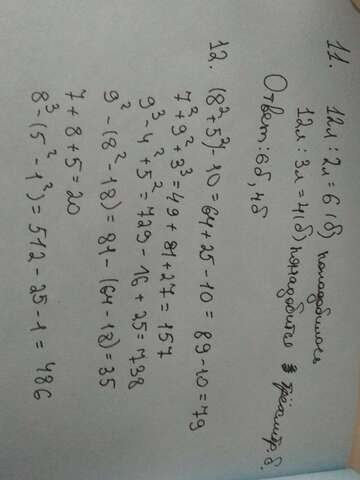 11. 12л : 2л = 6 (б) понадобилось
12л : 3л = 4 (б) понадобится 3 трёхлитр. б.
Ответ: 6б, 4б
12. (8²+5²)-10 = 64+25-10 = 89-10=79
7²+9²+3³=49+81+27=157
9³-4²+5²=729-16+25=738
9²-(8²-18)=81-(64-18)=35
7+8+5=20
8³-(5²-1³)=512-25-1=486